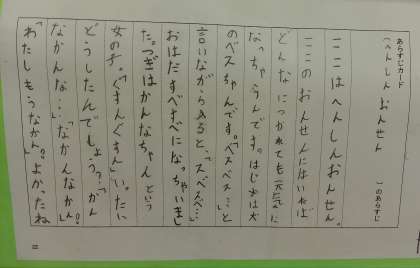 あらすじカード
(へんしんおんせん)のあらすじ
ここはへんしんおんせん。
ここのおんせんにはいれば
どんなにつかれても元気に
なっちゃうんです。はじめは犬
のベスちゃんです。「ベスベス…」と
言いながら入ると、「スベスベ…」
おはだすべすべになっちゃいまし
た。つぎはかんなちゃんという
女の子。「ぐすんぐすん」いったい
どうしたんでしょう?「かん
なかんな…」「なかんなかん」。
「わたしもうなかん。」よかったね